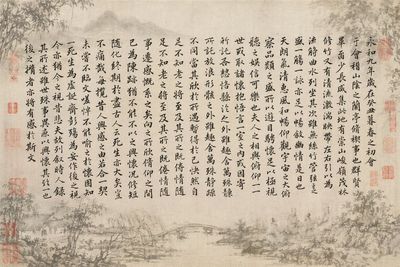 永和九年歲在癸丑暮春之初會
于會稽山陰之蘭亭脩稧事也群賢
畢至少長咸集此地有崇山峻領茂林
脩竹又有清流激湍映帶左右引以為
流觴曲水列坐其次雖無絲竹管弦之
盛一觴一詠亦足以暢敘幽情是日也
天朗氣清惠風和暢仰觀宇宙之大俯
察品類之盛所以遊目騁懷足以極視
聽之娛信可樂也夫人之相與俯仰一
世或取諸懷抱悟言一室之內或因寄
所託之外雖趣舍萬殊靜
所託放浪形骸之外雖趣舍萬殊靜躁
不同當其欣於所遇暫得於己快然自
足不知老之將至及其所之既倦情隨
足不知老之將至及其所之既倦情隨
事遷感慨係之矣向之所欣俛仰之間
已為陳跡猶不能不以之興懷況脩短
隨化終期於盡古人云死生亦大矣豈
不痛哉每攬昔人興感之由若合一契
未嘗不臨文嗟悼不能喻之於懷固知
一死生為虛誕齊彭殤為妄作後之視
今亦猶今之視昔悲夫故列敘時人錄
其所述雖世殊事異所以興懷其致一也
後之攬者亦將有感於斯文